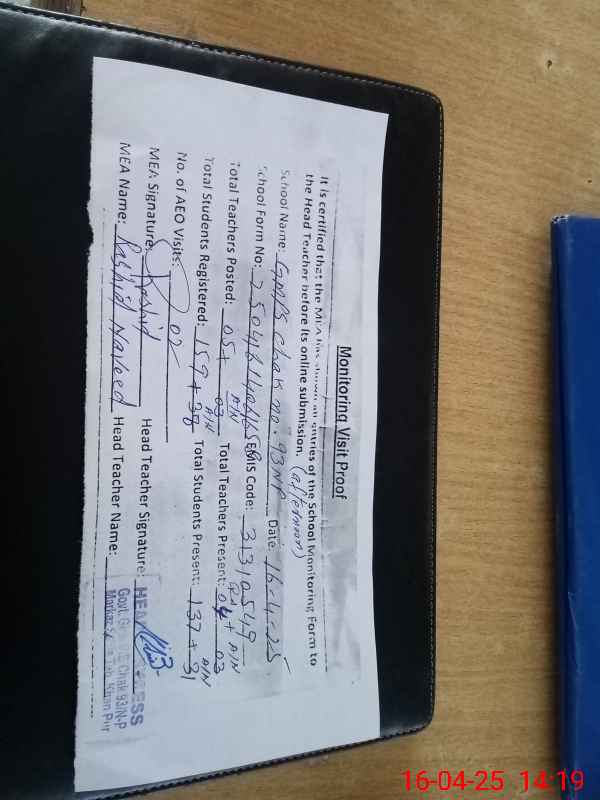 Monitoring Visit Proof
It is certified that the MEA has shown all entries of the School Monitoring Form to
the Head Teacher before its online submission. (afternoon)
School Name: GMPS Chak no. 93NP Date: 16-4-25
School Form No: EMIS Code: 31310549
Total Teachers Posted: 05+ 03 A/N Total Teachers Present: 04 + 03 A/N
Total Students Registered: 159 + 38 A/N Total Students Present: 137 + 31 A/N
No. of AEO Visits: 02
MEA Signature: Rashid Head Teacher Signature:
MEA Name: Rashid Naveed Head Teacher Name:
Chak 93/N-P
16-04-25 14:19